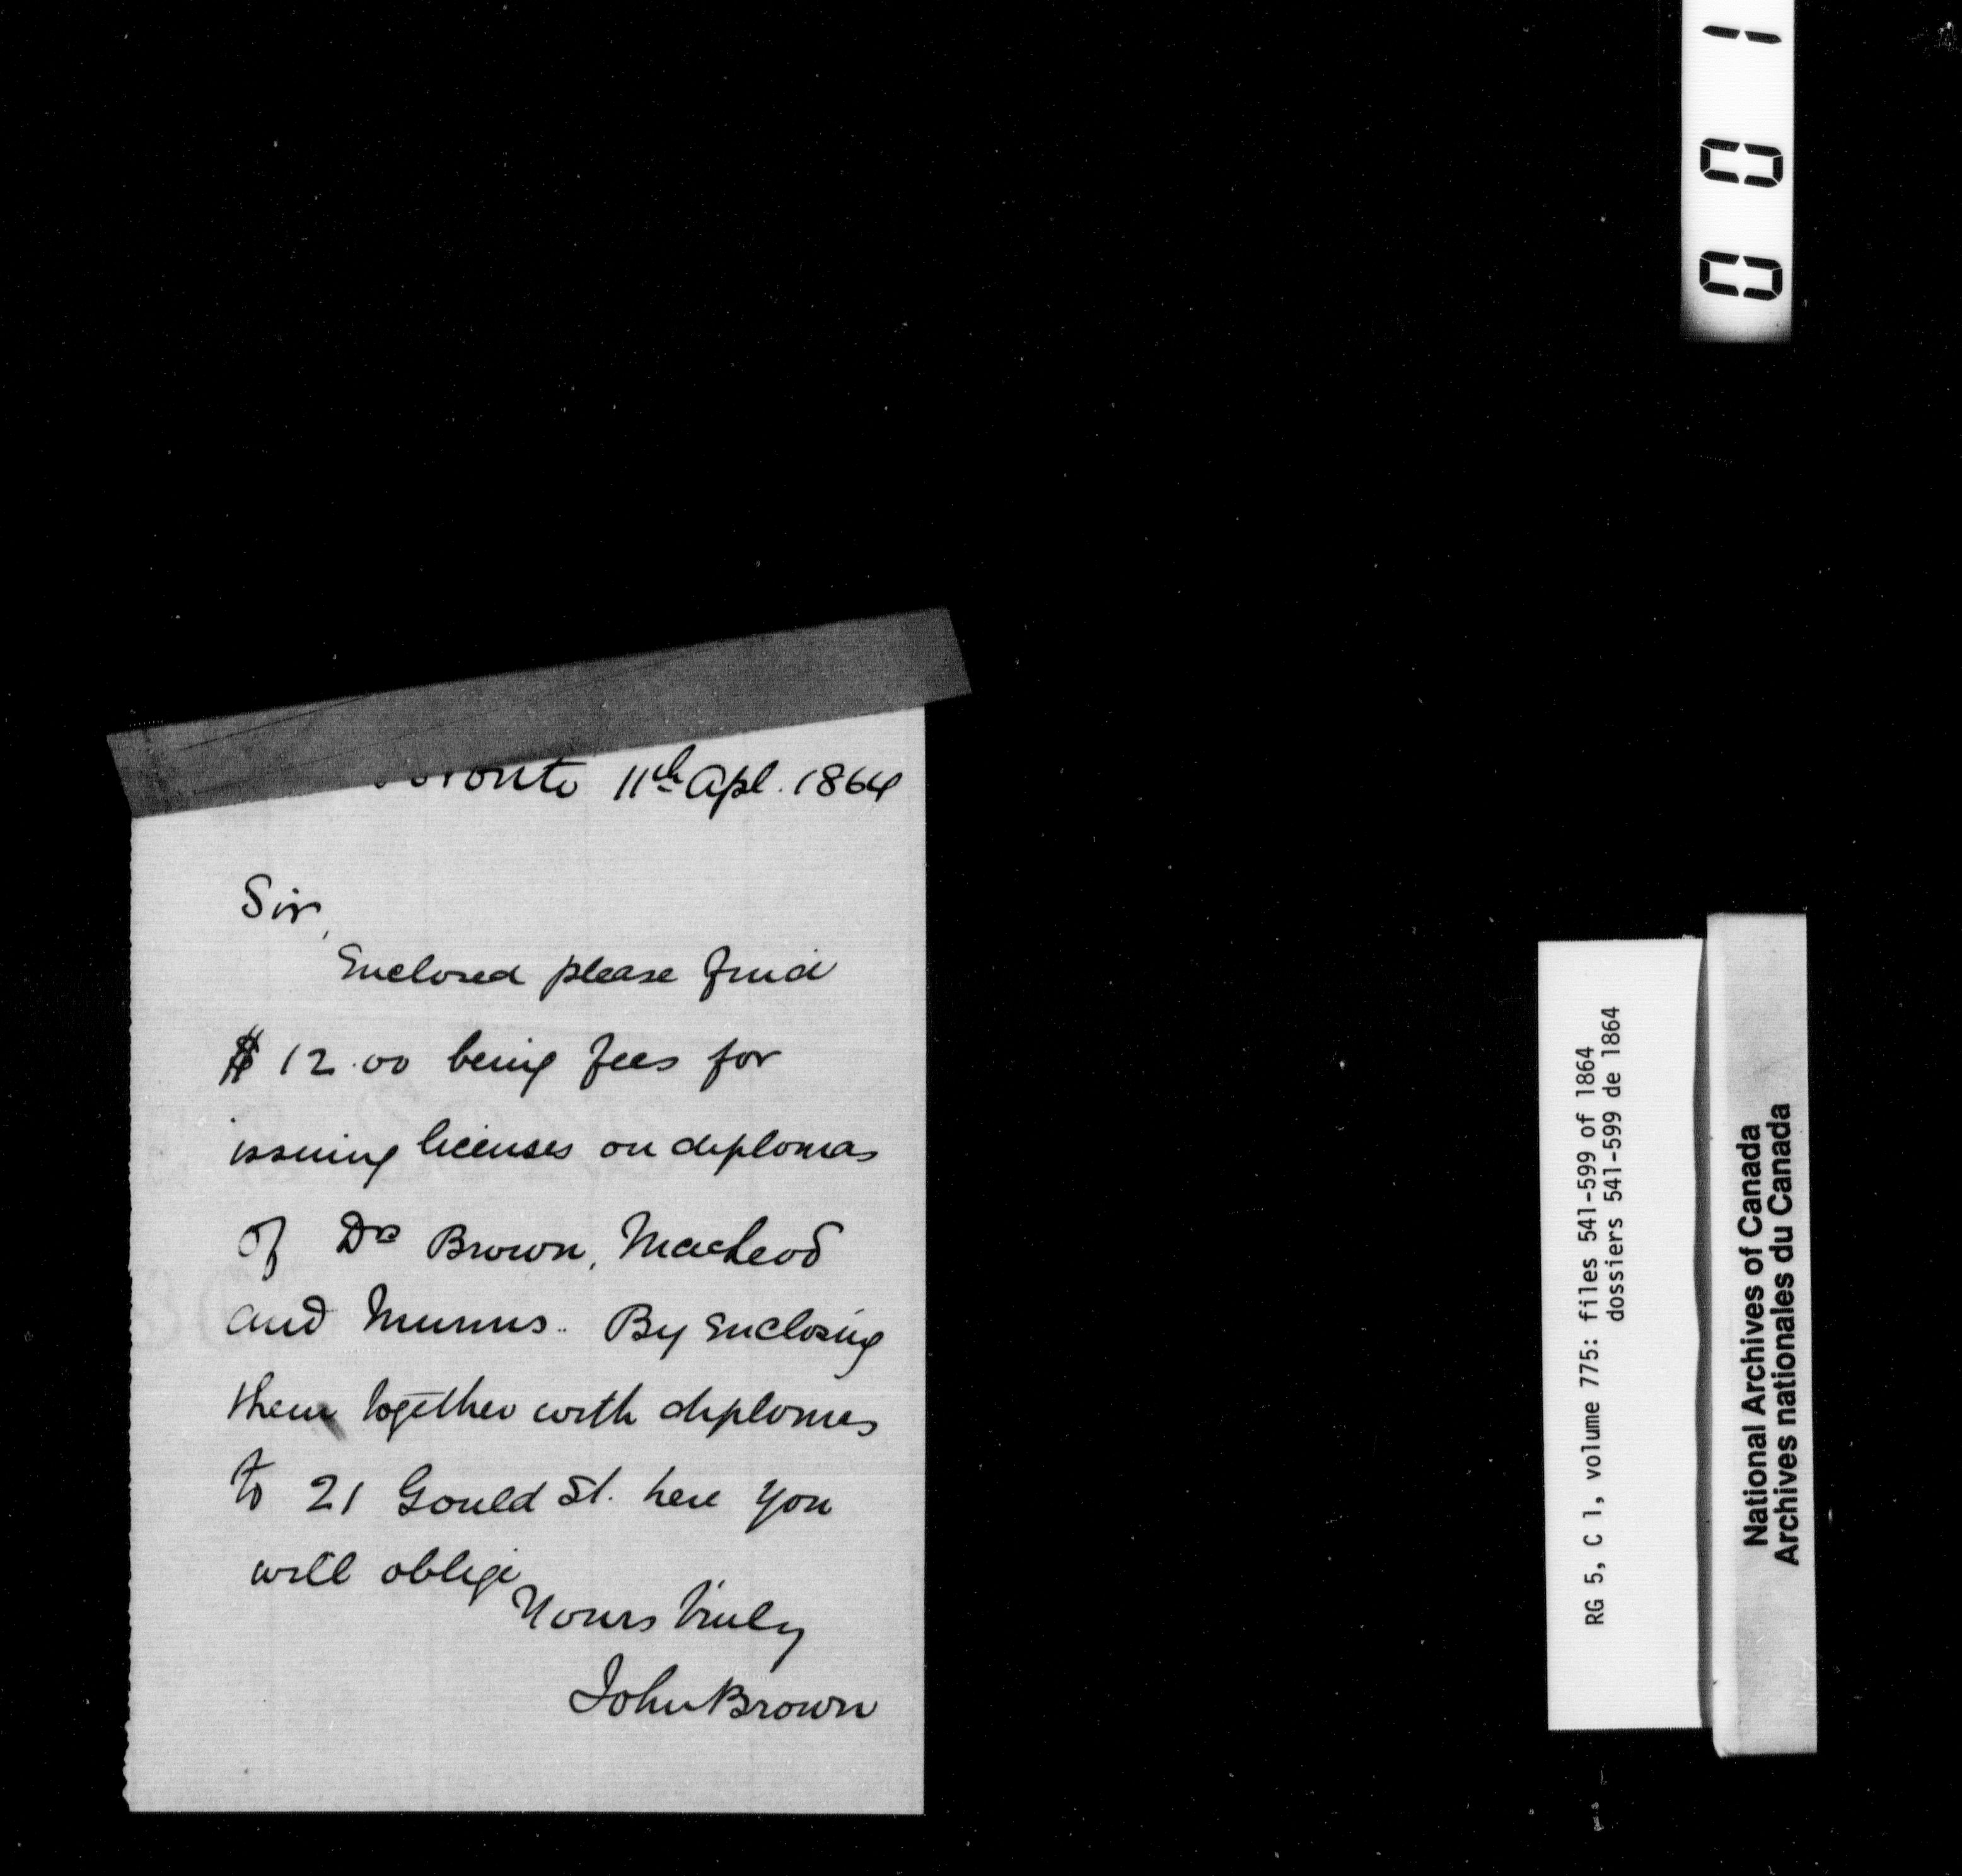 Toronto 11th Apl. 1864
Sir,
Enclosed please find
$12.00 being fees for
issuing licenses on diplomas
of Drs Brown, MacLeod
and Munns. By Enclosing
them together with diplomas
to 21 Gould St. here you
will oblige
Yours truly
John Brown
001
RG 5, C 1, volume 775: files 541-599 of 1864
dossiers 541-599 de 1864
National Archives of Canada
Archives nationales du Canada